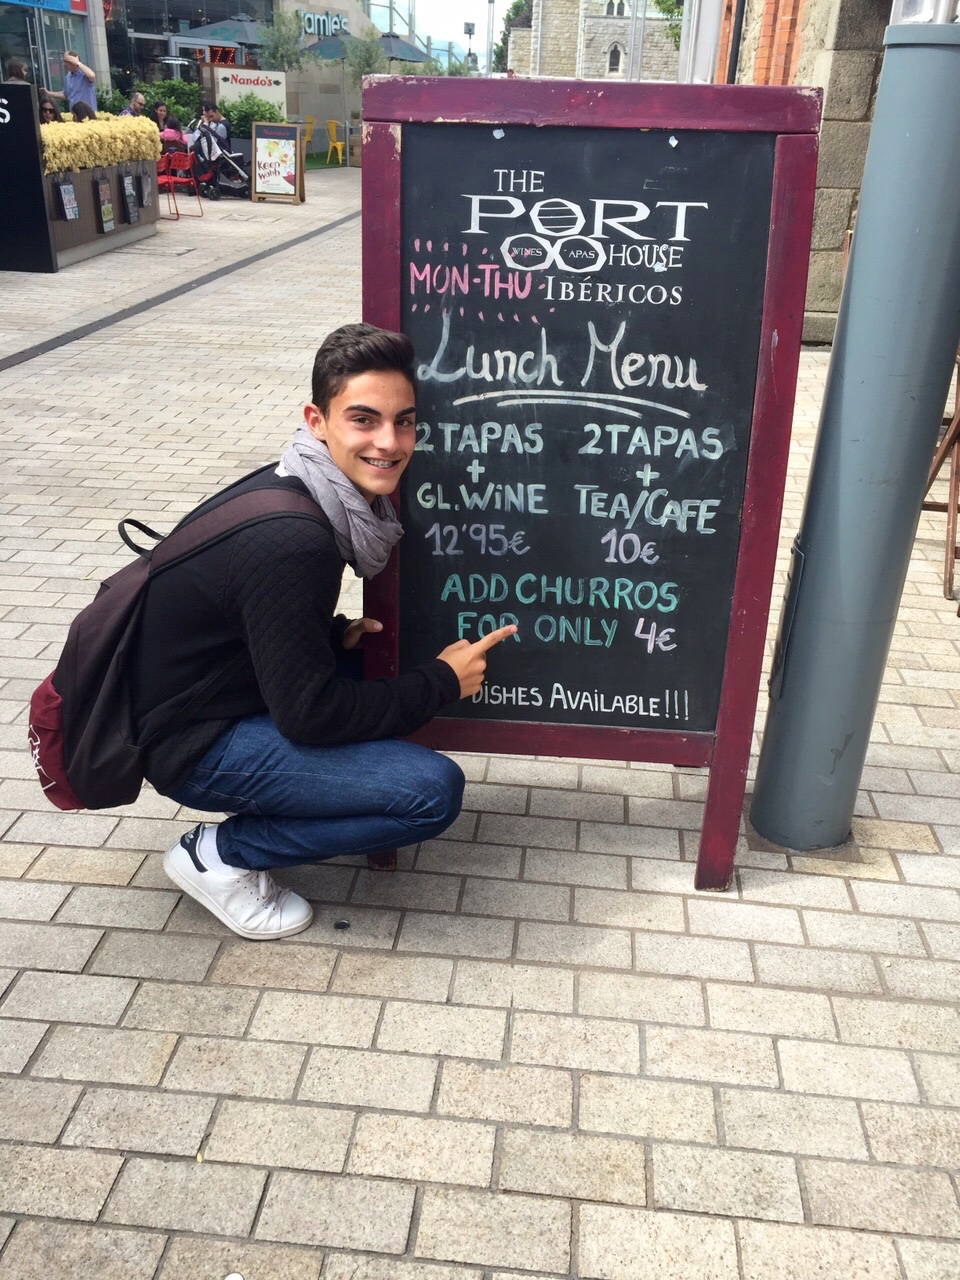 Jamie's
Nando's
Keep
THE
PORT
WINES TAPAS HOUSE
MON-THU IBÉRICOS
Lunch Menu
2 TAPAS
+
GL.WiNE
12'95€
2 TAPAS
+
TEA/CAFE
10€
ADD CHURROS
FOR ONLY 4€
DISHES AVAiLABLE!!!